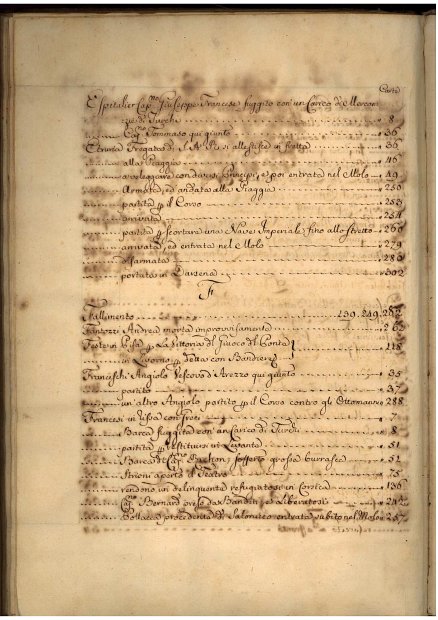 Carte
Cap.no Giuseppe Francese fuggito con un Carico di Mercan
zie di Turchi 8
Cap.no Tommaso qui giunto 36
Etruria Fregata di S. A. R. si allestisce in fretta 36
alla Piaggia 46
a veleggiare con diversi Principi, e poi entrata nel Molo 49
Armata, ed andata alla Piaggia 250
partita p il Corso 253
arrivata 264
partita p scortare una Nave Imperiale fino allo Stretto 266
arrivata, ed entrata nel Molo 279
disarmata 286
portata in Darsena 302
F
Fallimento 139. 249. 262
Fantozzi Andrea morto improvvisamente 263
Feste in Pisa p La Vittoria del Giuoco del Ponte
in Livorno p detta con Bandiere 118
Franceschi Angiolo Vescovo d'Arezzo qui giunto 35
partito 37
un'altro Angiolo partito p il Corso contro gli Ottomanni 288
Francesi in 7
Barca fuggita con un Carico di Turchi 8
partita p restituirsi in Levante 51
Barca di Cap.no Gaetani sofferto grossa burrasca 52
Istrioni aperto il Teatro 75
rendono un delinquente refugiatosi in Corsica 136
Cap.no Bernard preso da Banditi, e liberatosi 242
Pollacca procedente di Salonicco entrata subito nel Molo 257